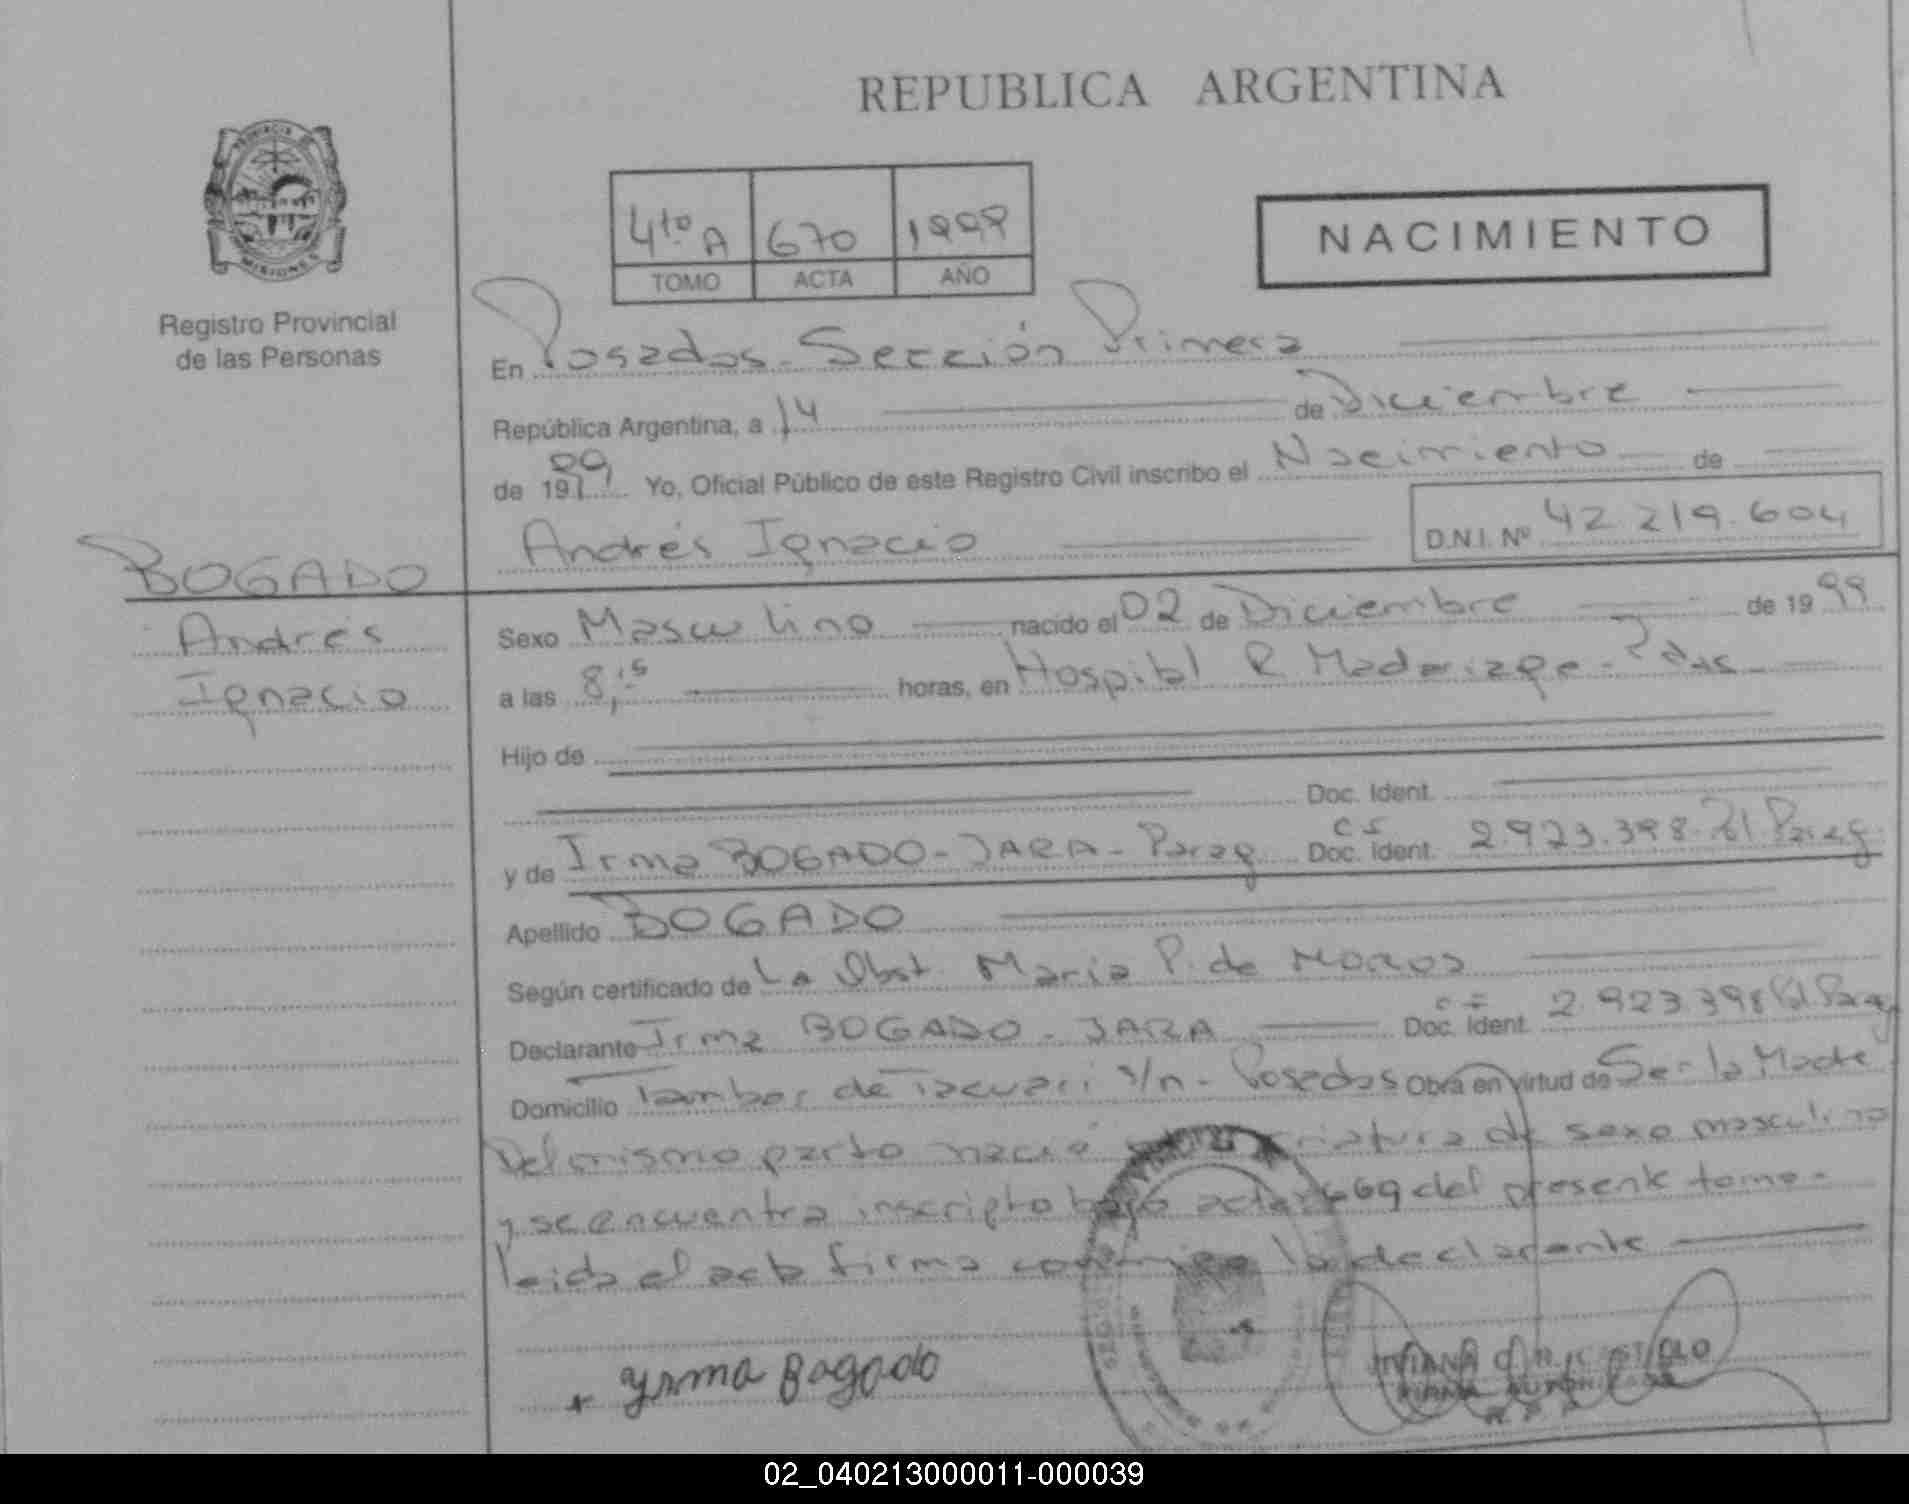 REPUBLICA ARGENTINA
PROVINCIA DE MISIONES
Registro Provincial
de las Personas
4to A 670 1999
TOMO ACTA AÑO
NACIMIENTO
En Posadas - Sección Primera
República Argentina, a 14 de Diciembre
de 1999 Yo, Oficial Público de este Registro Civil inscribo el Nacimiento de
Andrés Ignacio D.N.I. Nº 42.219.604
BOGADO
Andrés
Ignacio
Sexo Masculino nacido el 02 de Diciembre de 1999
a las 8,15 horas, en Hospital R Madariaga - Pdas
Hijo de
Doc. Ident.
y de Irma BOGADO - JARA - Parag Doc. Ident. 2.923.398 Pol. Parag.
Apellido BOGADO
Según certificado de La Obst. Maria P. de
Declarante Irma BOGADO - JARA Doc. Ident. 2.923.398 Pol Parag
Domicilio Tambor de Tacuari s/n - Posadas Obra en virtud de Ser la Madre
Del mismo parto nació criatura de sexo masculino
y se encuentra inscripto bajo acta 669 del presente tomo -
leida el acta firma conmigo la declarante
Yrma Bogado
02_040213000011-000039